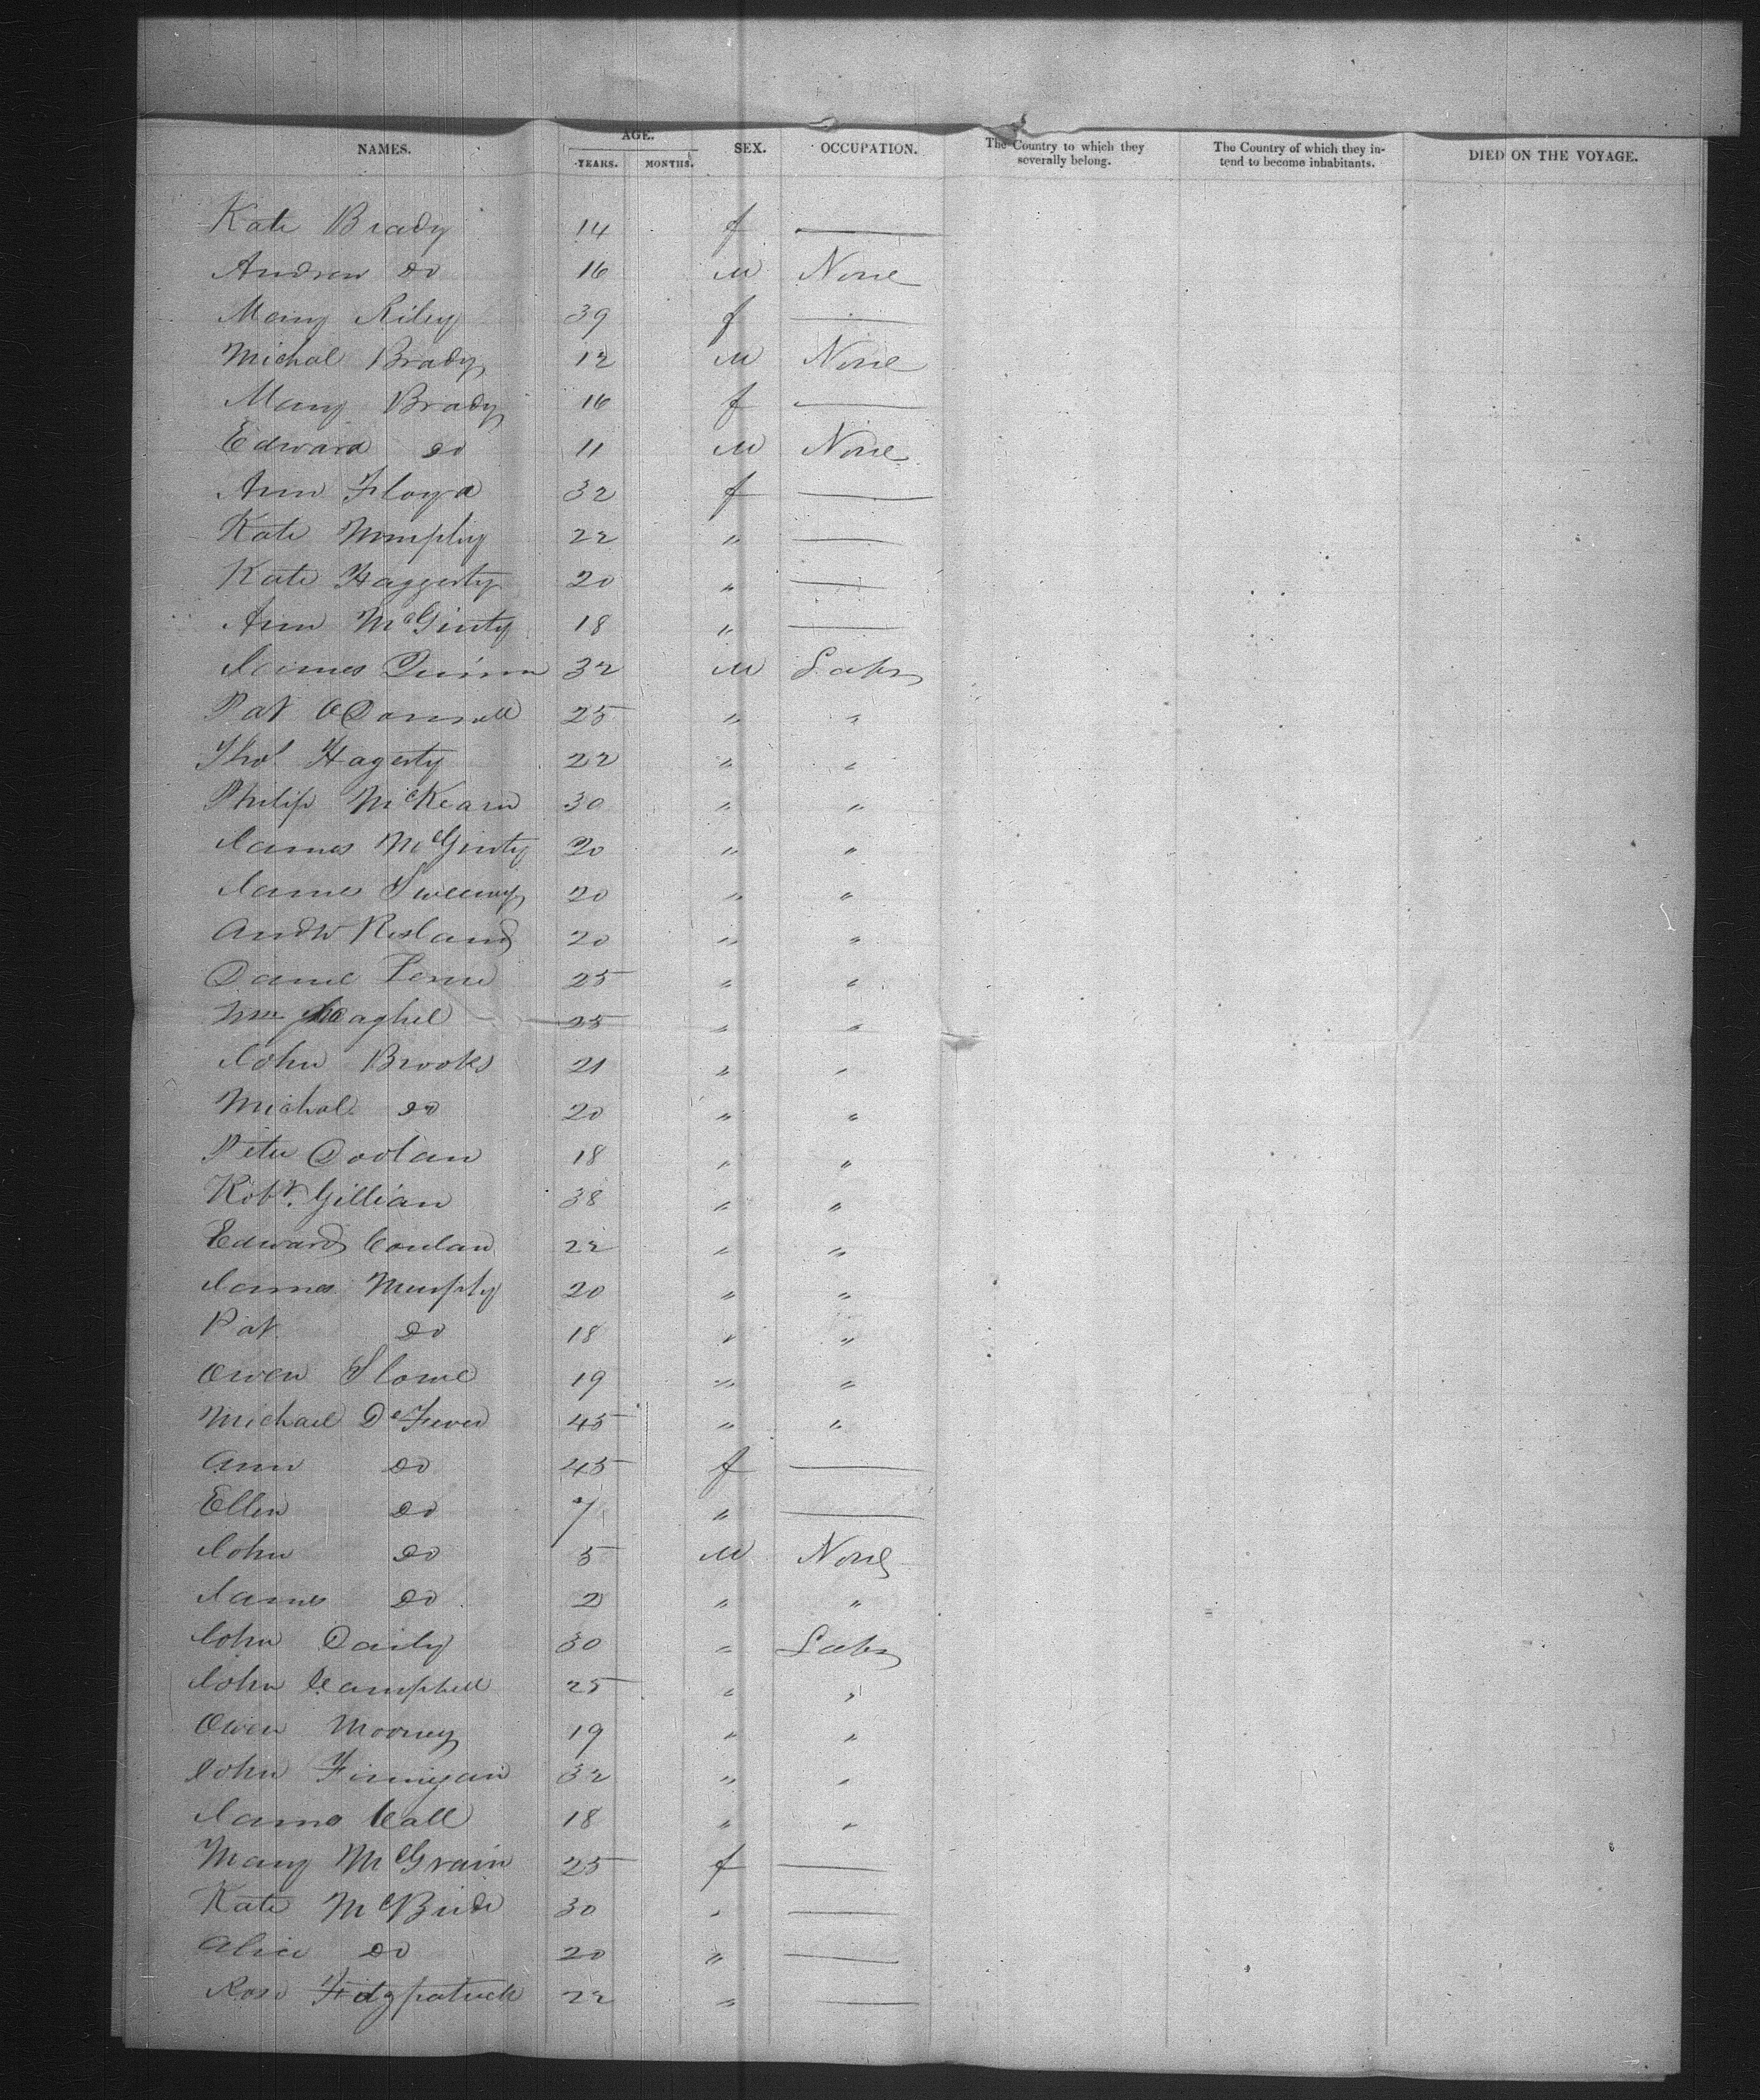 NAMES. AGE. YEARS. MONTHS. SEX. OCCUPATION. The Country to which they severally belong. The Country of which they intend to become inhabitants. DIED ON THE VOYAGE.
Kate Brady 14 f —
Andrew Do 16 M None
Mary Riley 39 f —
Michal Brady 12 M None
Mary Brady 16 f —
Edward Do 11 M None
Ann Floyd 32 f —
Kate Murphy 22 " —
Kate Haggerty 20 " —
Ann McGinty 18 " —
James Quinn 32 M Labr
Pat ODonnell 25 " "
Thos Hagerty 22 " "
Philip McKearn 30 " "
James McGinty 20 " "
James Sweeny 20 " "
Andw 20 " "
25 " "
Wm 25 " "
John Brooks 21 " "
Michal Do 20 " "
Peter Doolan 18 " "
Robt. Gillian 38 " "
Edward Conlan 22 " "
James Murphy 20 " "
Pat Do 18 " "
Owen Slowe 19 " "
Michael 45 " "
Ann Do 45 f —
Ellen Do 7 " —
John Do 5 M None
James Do 2 " "
John Daily 30 " Labr
John Campbell 25 " "
Owen Mooney 19 " "
John Finnigan 32 " "
James Call 18 " "
Mary McGrain 25 f —
Kate McBride 30 " —
Alice Do 20 " —
Rose Fitzpatrick 22 " —